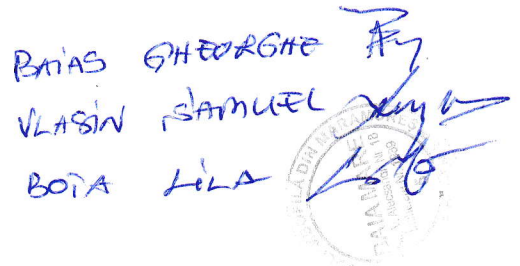 BAIAS GHEORGHE
VLASIN SAMUEL
BOTA LILA
DIN MARAMUREȘ
BAIA MARE